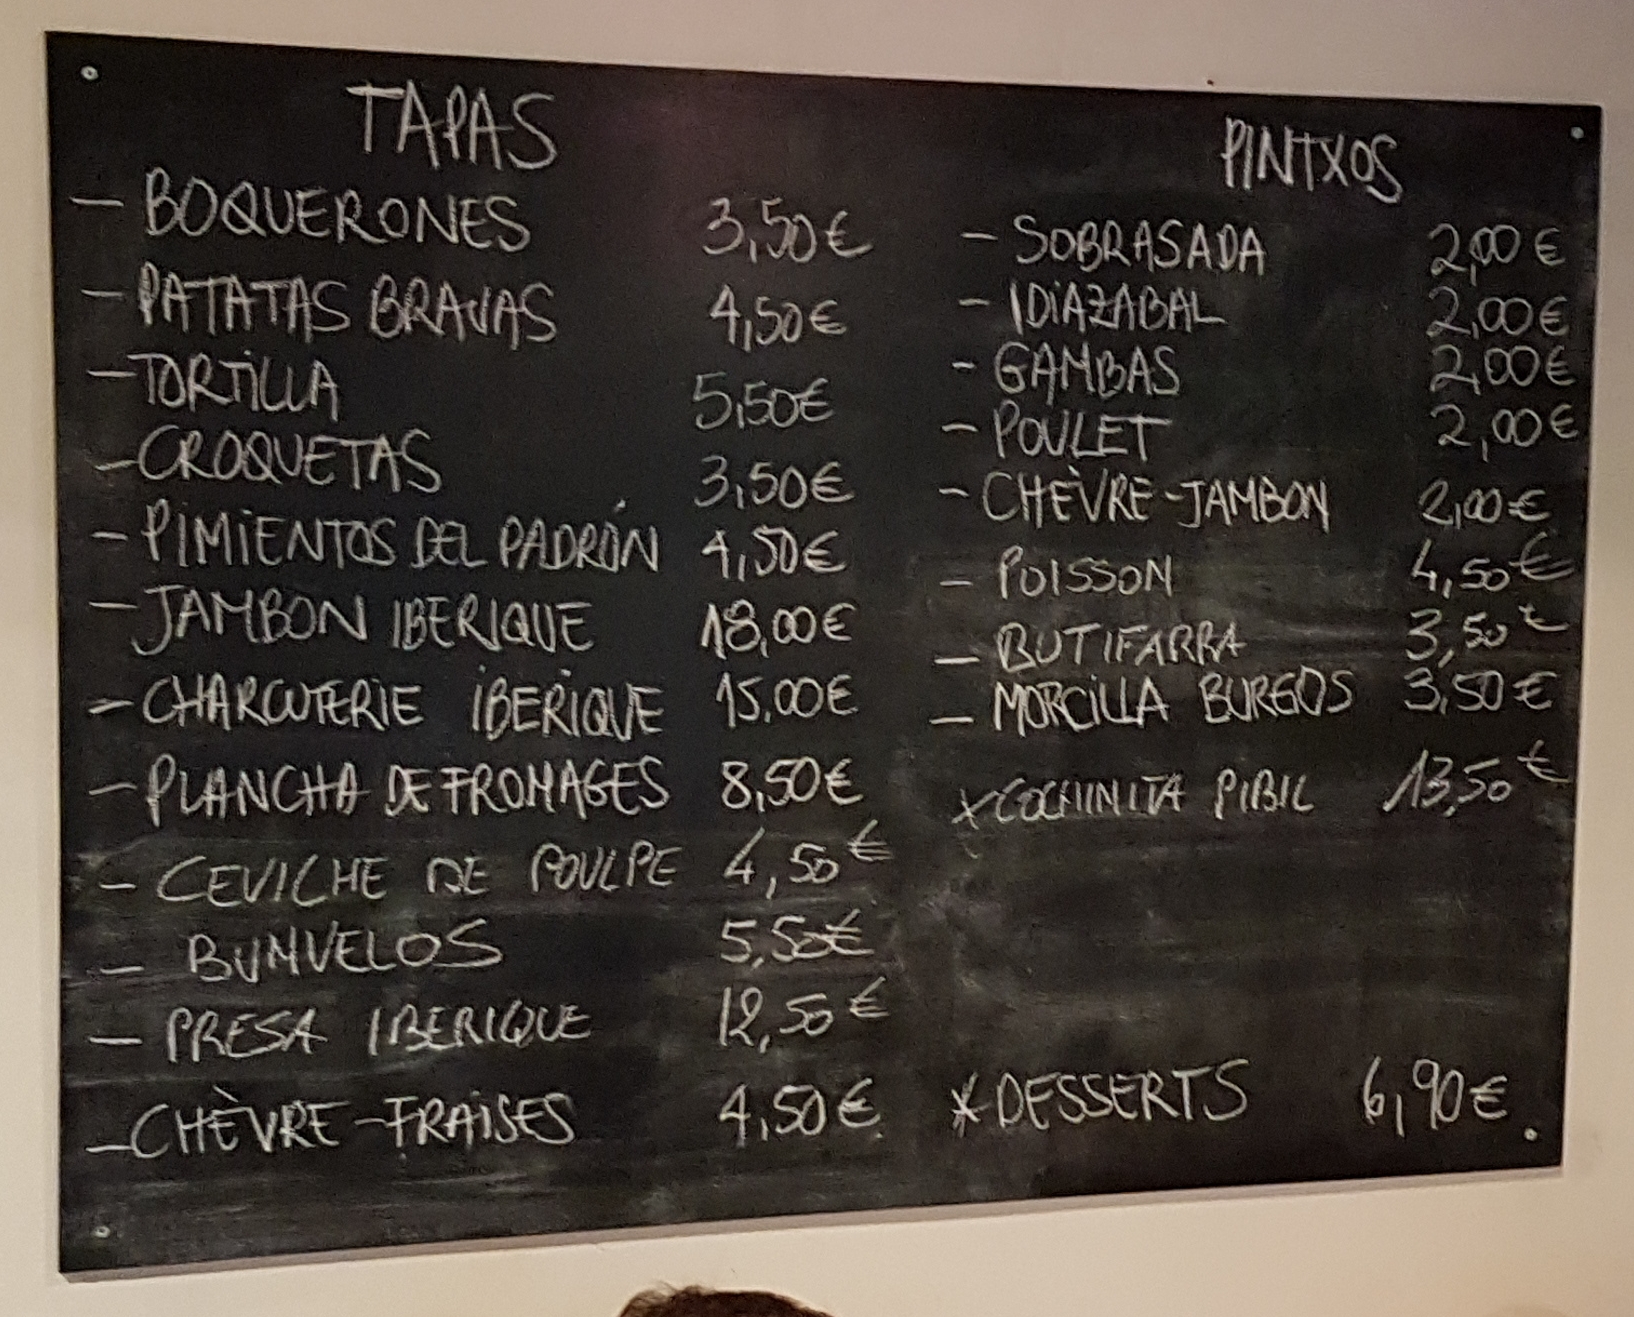 TAPAS
- BOQUERONES 3,50€
- PATATAS BRAVAS 4,50€
- TORTILLA 5,50€
- CROQUETAS 3,50€
- PIMIENTOS DEL PADRÓN 4,50€
- JAMBON IBERIQUE 18,00€
- CHARCUTERIE IBERIQUE 15,00€
- PLANCHA DE FROMAGES 8,50€
- CEVICHE DE POULPE 4,50€
- BUNVELOS 5,50€
- PRESA IBERIQUE 12,50€
- CHÈVRE-FRAISES 4,50€
PINTXOS
- SOBRASADA 2,00€
- IDIAZABAL 2,00€
- GAMBAS 2,00€
- POULET 2,00€
- CHÈVRE-JAMBON 2,00€
- POISSON 4,50€
- BUTIFARRA 3,50€
- MORCILLA BURGOS 3,50€
x COCHINITA PIBIL 13,50€
* DESSERTS 6,90€